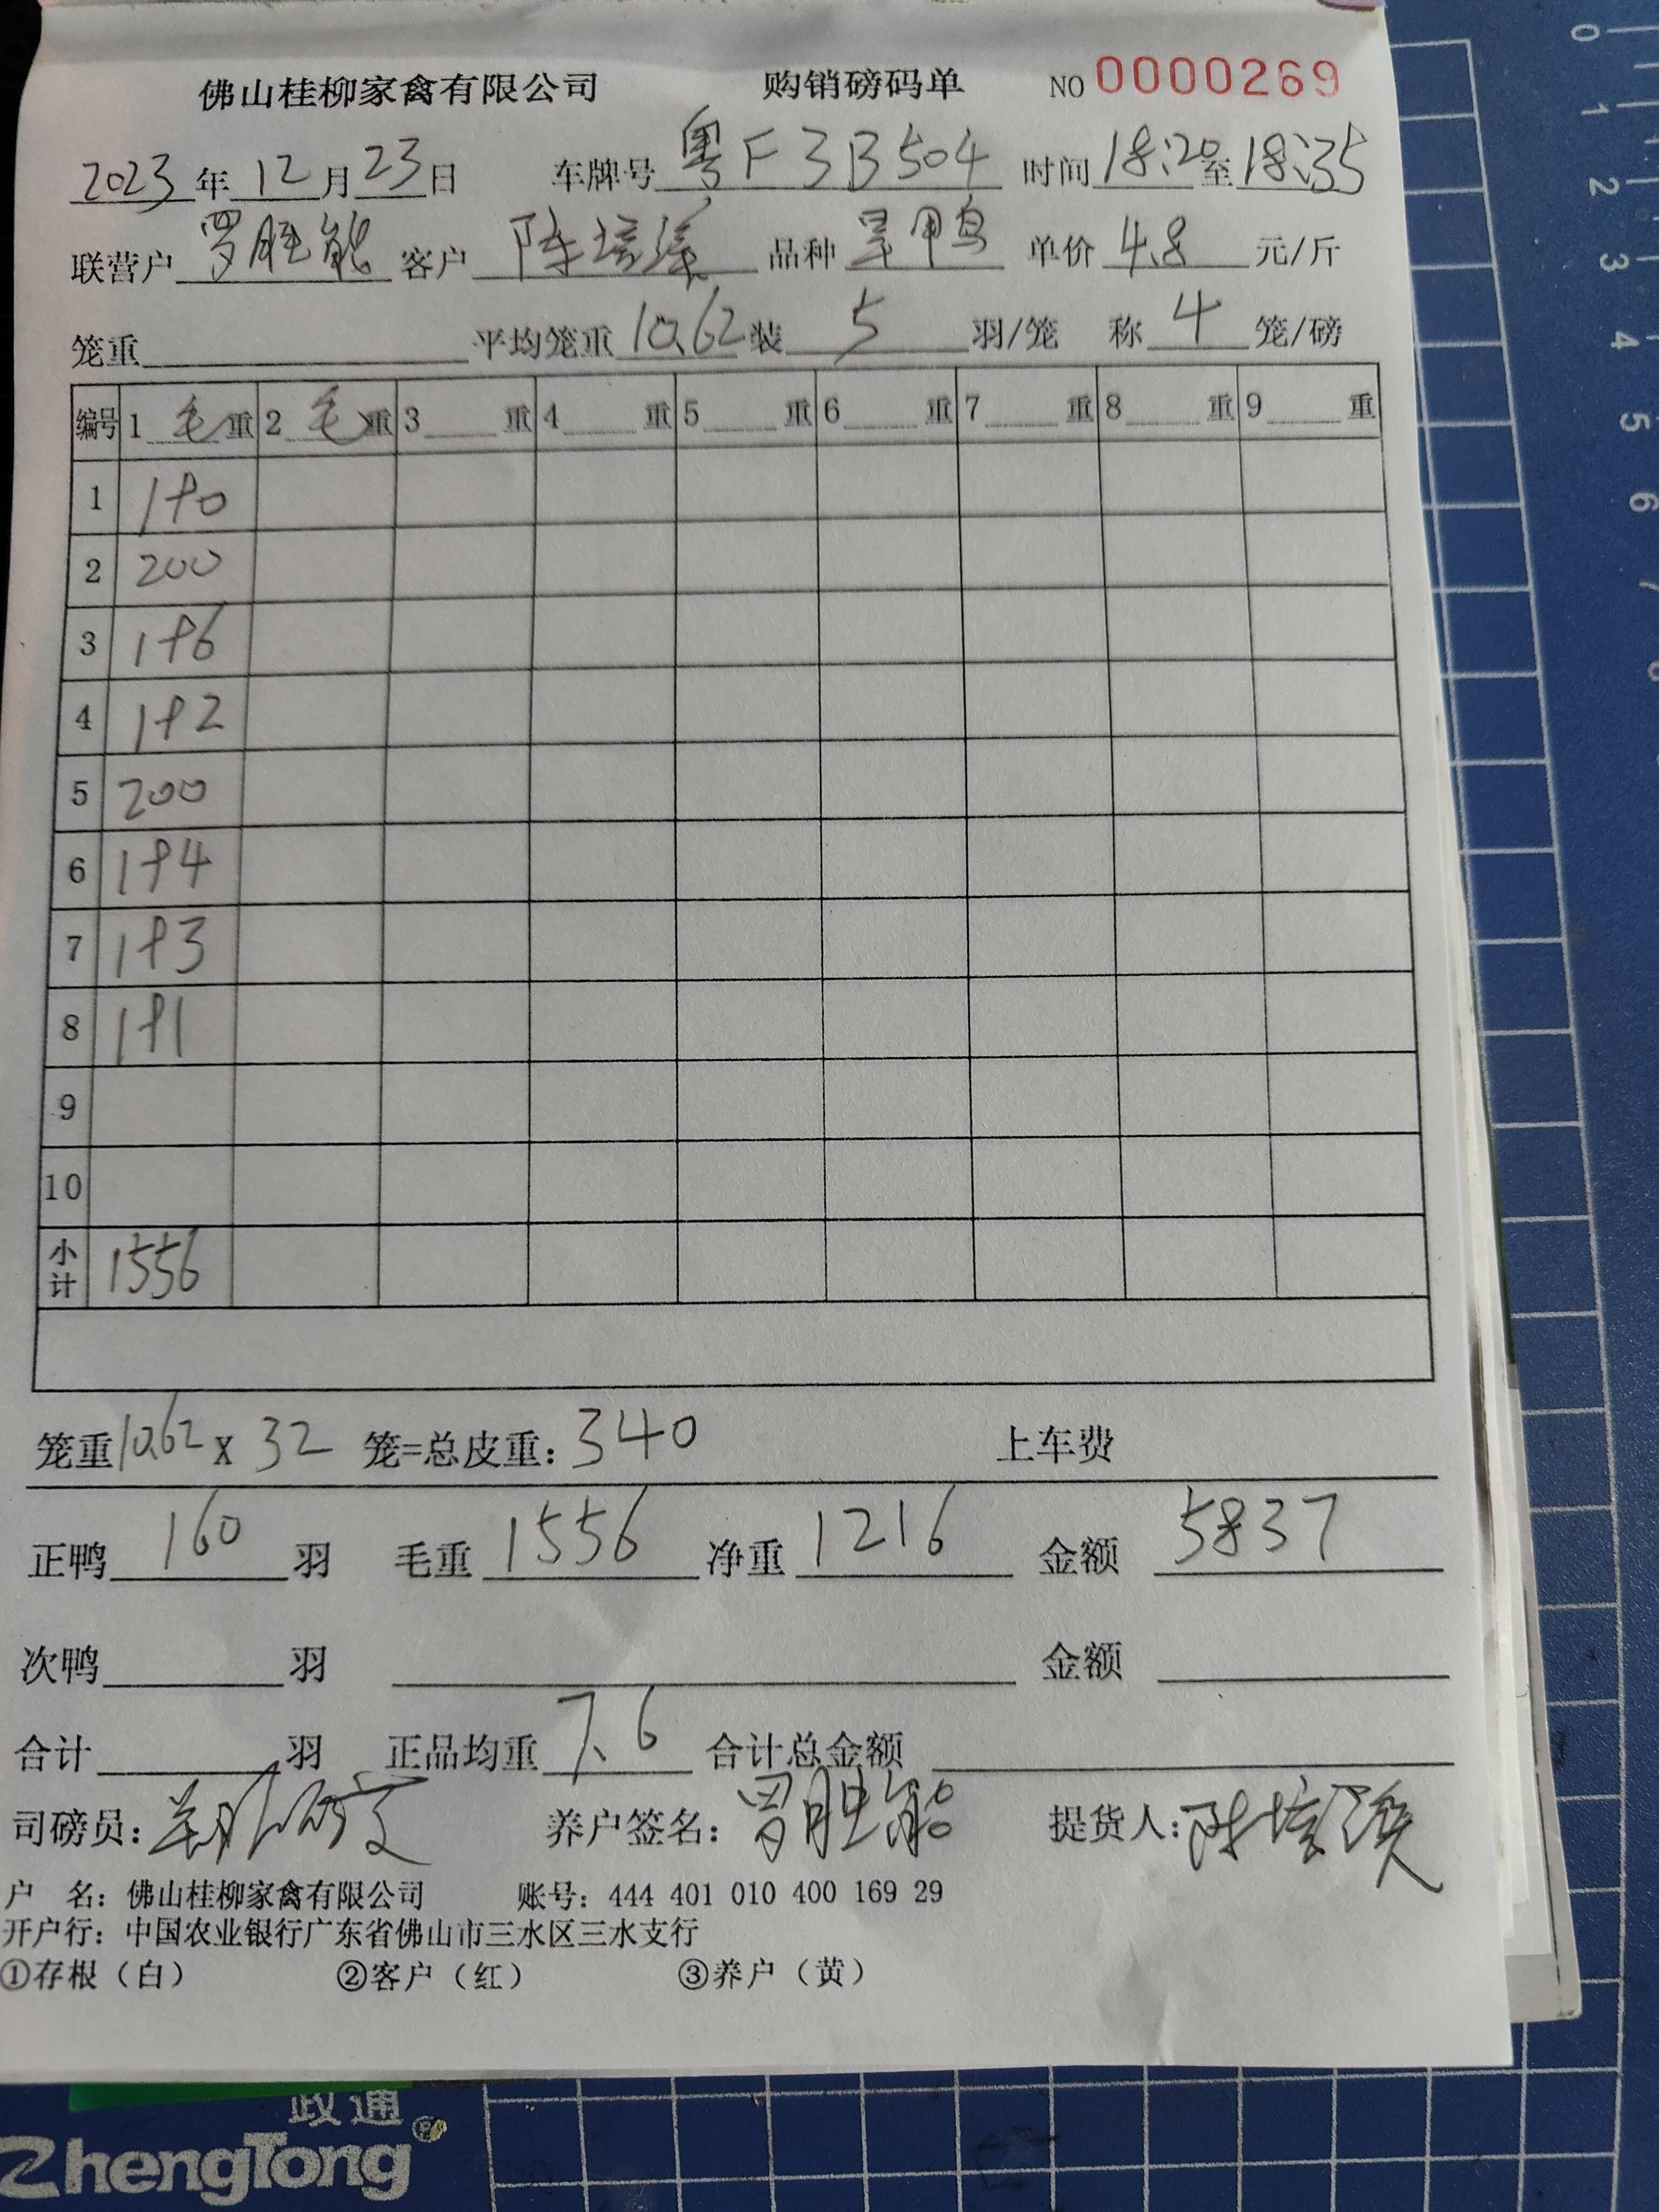 佛山桂柳家禽有限公司 购销磅码单 NO 0000269
2023年12月23日 车牌号 粤F3B504 时间 18:20至18:35
联营户 罗胜能 客户 陈 品种 旱鸭 单价 4.8 元/斤
笼重 平均笼重 10.62 装 5 羽/笼 称 4 笼/磅
编号 1 毛重 2 毛重 3 重 4 重 5 重 6 重 7 重 8 重 9 重
1 190
2 200
3 196
4 192
5 200
6 194
7 193
8 191
9
10
小计 1556
笼重10.62 X 32 笼=总皮重: 340 上车费
正鸭 160 羽 毛重 1556 净重 1216 金额 5837
次鸭 羽 金额
合计 羽 正品均重 7.6 合计总金额
司磅员: 养户签名: 罗胜能 提货人: 陈
户 名: 佛山桂柳家禽有限公司 账号: 444 401 010 400 169 29
开户行: 中国农业银行广东省佛山市三水区三水支行
①存根（白） ②客户（红） ③养户（黄）
0
1
2
3
4
5
6
7
政通
ZhengTong